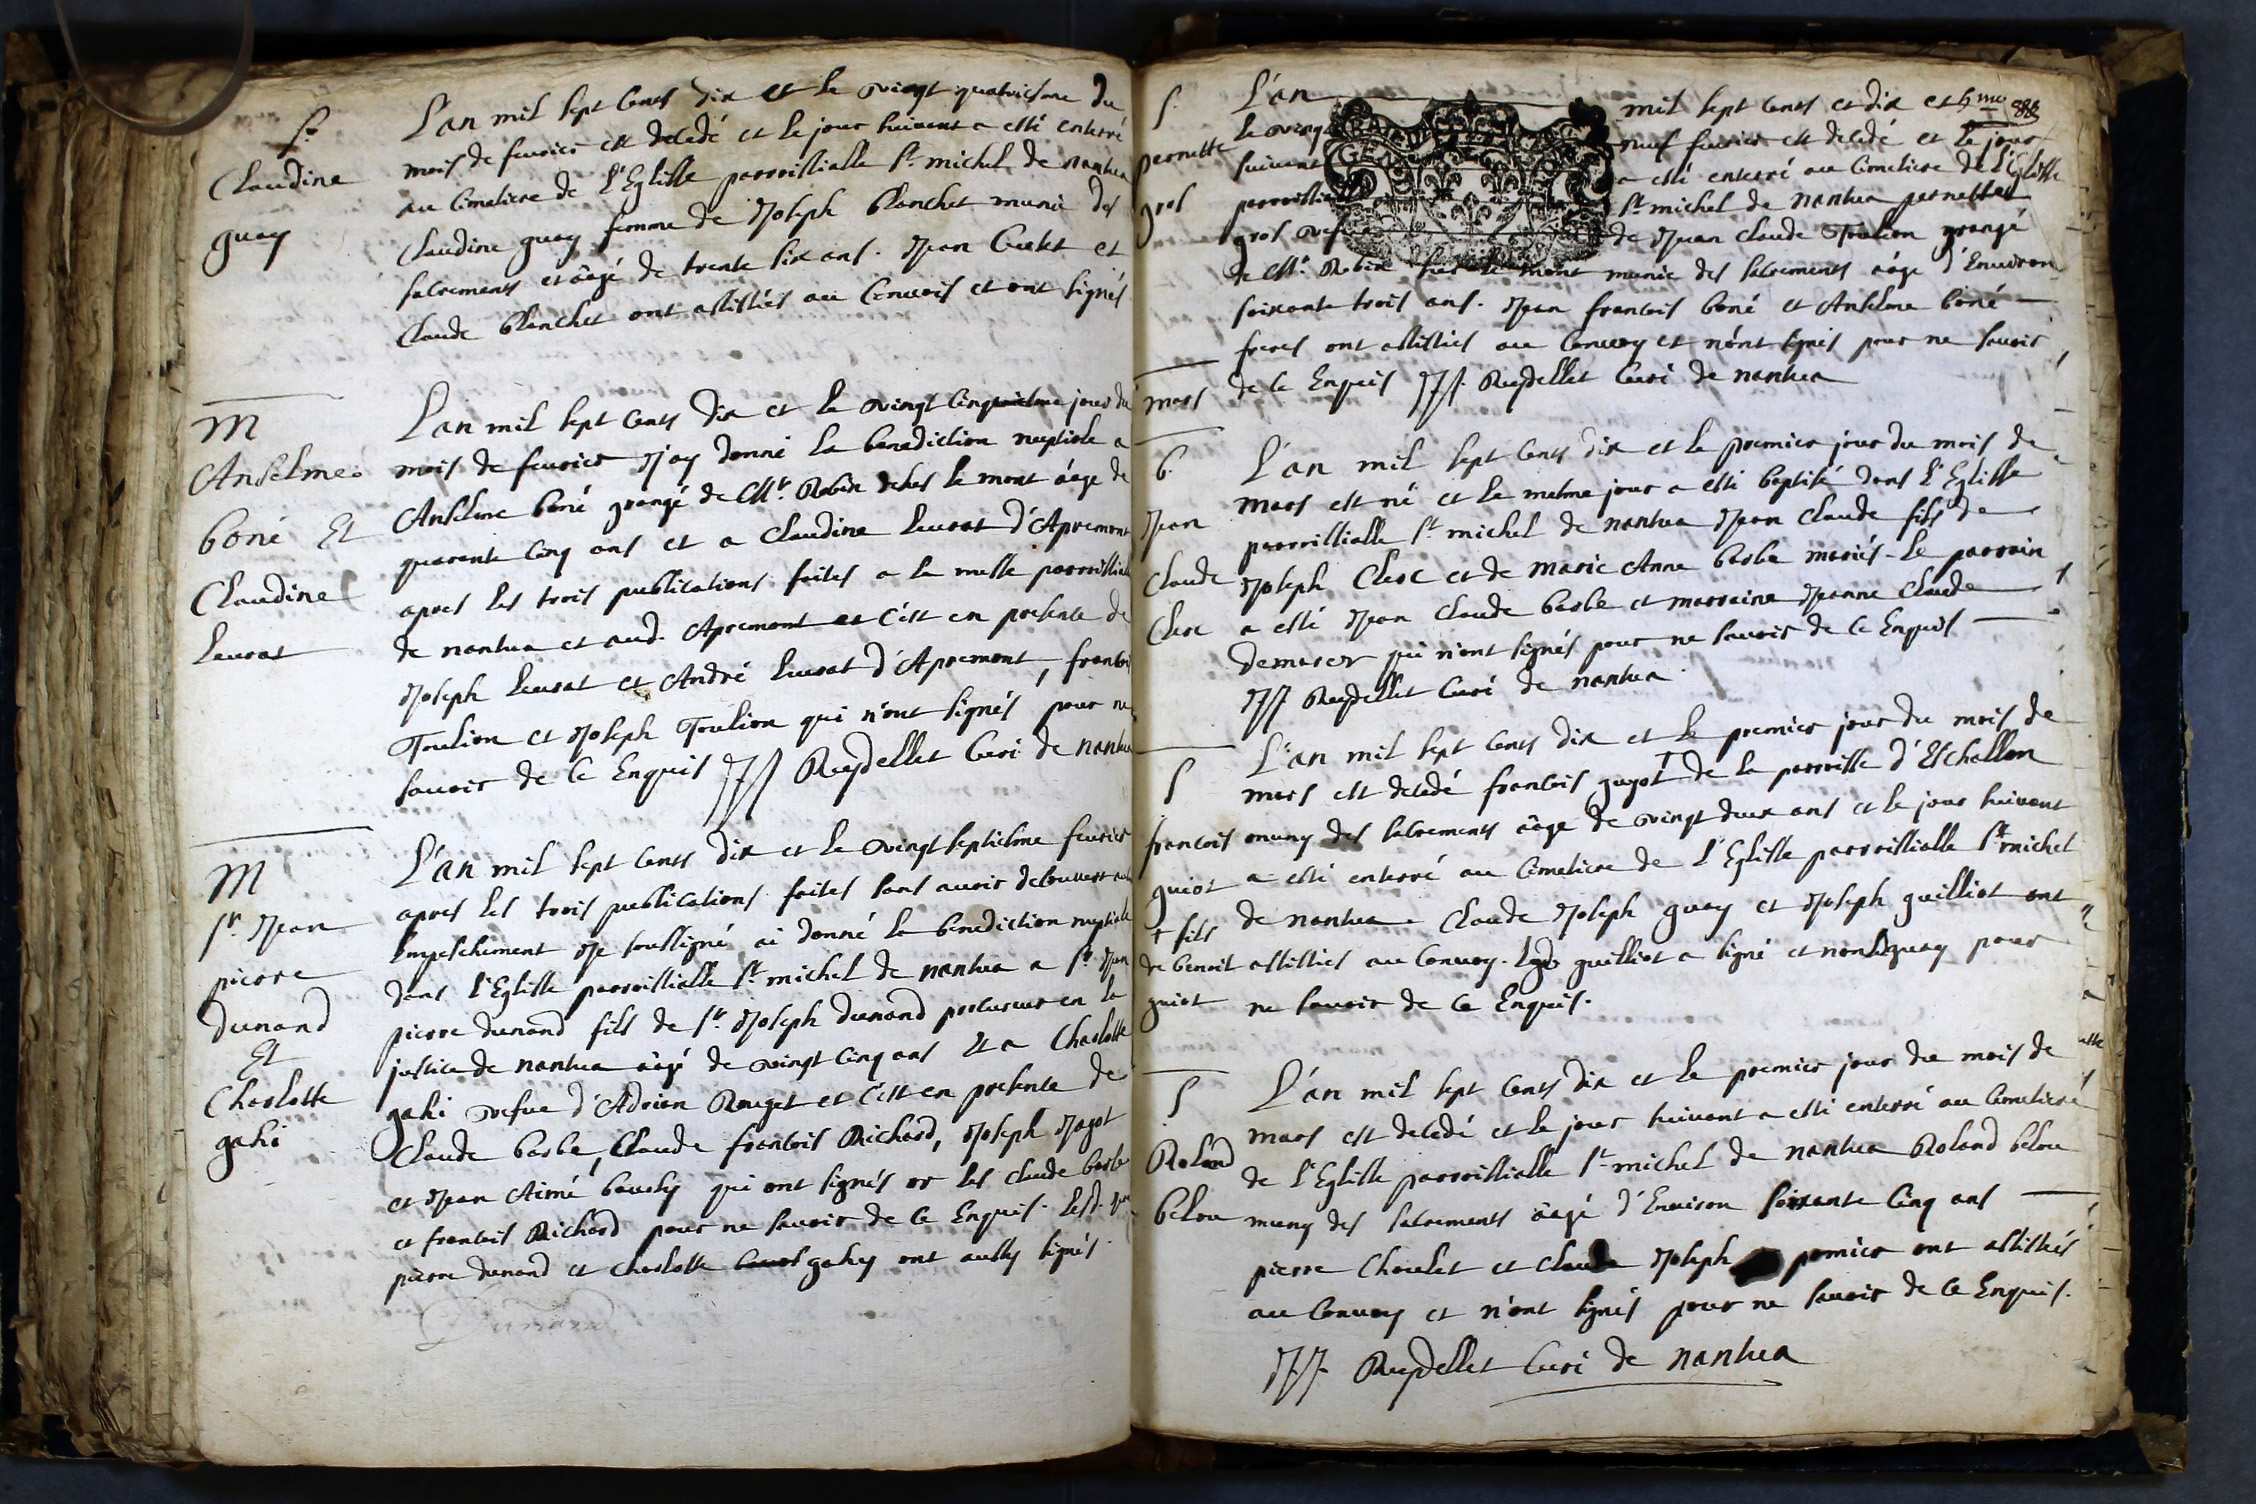 S.
Claudine
guoy
L'an mil sept cents dix et le vingt quatriesme du
mois de feurier est decedé et le jour suiuant a esté enterré
au Cimetiere de l'Eglise parroissialle St. michel de nantua
Claudine guoy femme de Joseph Blanchet munie des
sacrements et aagé de trente six ans. Jean et
Claude Blanchet ont assistés au Conuois et ont signés
M
Anselme
boné Et
Claudine
Leurat
L'an mil sept cents dix et le vingt cinq jour du
mois de feurier J'ay donné la benediction nuptiale a
Anselme boné grangé de Mr. Robin dehes le mont aage de
quarent cinq ans et a Claudine Leurat d'Apremont
apres les trois publications faites a la messe parroissialle
de nantua et aud. Apremont et c'est en presente de
Joseph Leurat et André Leurat d'Apremont, francois
Toulion et Joseph Toulion qui n'ont signés pour ne
sauoir de ce Enquis JJ Reydellet Curé de nantua
M
Sr. Jean
pierre
dunand
Et
Charlotte
gahi
L'an mil sept cents dix et le vingt septiesme feurier
apres les trois publications faites sans auoir decouuert
Empeschement Je soussigné ai donné la benediction nuptialle
dans l'Eglise parroissialle St. michel de nantua a Sr. Jean
pierre dunand fils de Sr. Joseph dunand procureur en la
justice de nantua aagé de vingt cinq ans Et a Charlotte
gahi vefue d'Adrien Rouget et c'est en presente de
Claude barbe, Claude francois Richard, Joseph Jagot
et Jean Aimé qui ont signés or les Claude barbe
et francois Richard pour ne sauoir de ce Enquis. Lesd.
pierre dunand et charlotte gahy ont aussy signés.
Dunand
S.
pernette
gros
L'an mil sept cents et dix et 88
le vingt neuf feurier est decedé et le jour
suiuant a esté enterré au Cimetiere de l'Eglise
parroissialle St. michel de nantua pernette
gros vefue de Jean Claude Toulion grangé
de Mr. Robin sur le mont munie des sacrements aage d'Enuiron
soixante trois ans. Jean francois boné et Anselme boné
freres ont assistés au Conuoy et n'ont signés pour ne sauoir
de ce Enquis JJ. Reydellet Curé de nantua
mars
b.
Jean
Claude
Clerc
L'an mil sept cents dix et le premier jour du mois de
mars est né et le mesme jour a esté baptisé dans l'Eglise
parroissialle St. michel de nantua Jean Claude fils de
Joseph Clerc et de marie Anne barbe mariés. Le parrain
a esté Jean Claude barbe et marraine Jeanne Claude
qui n'ont signés pour ne sauoir de ce Enquis
JJ Reydellet Curé de nantua
S
francois
guiot
+ fils
de benoit
guiot
L'an mil sept cents dix et le premier jour du mois de
mars est decedé francois guyot+ de la parroisse d'Eschallon
muny des sacrements aage de vingt deux ans et le jour suiuant
a esté enterré au Cimetiere de l'Eglise parroissialle St. michel
de nantua. Claude Joseph guoy et Joseph guilliot ont
assistés au Conuoy. led. guilliot a signé et non led guoy pour
ne sauoir de ce Enquis.
S
Roland
belou
L'an mil sept cents dix et le premier jour du mois de
mars est decedé et le jour suiuant a esté enterré au Cimetiere
de l'Eglise parroissialle St. michel de nantua Roland belou
muny des sacrements aagé d'Enuiron soixante cinq ans
pierre Choulet et Claude Joseph pernier ont assistés
au Conuoy et n'ont signés pour ne sauoir de ce Enquis.
JJ. Reydellet Curé de nantua